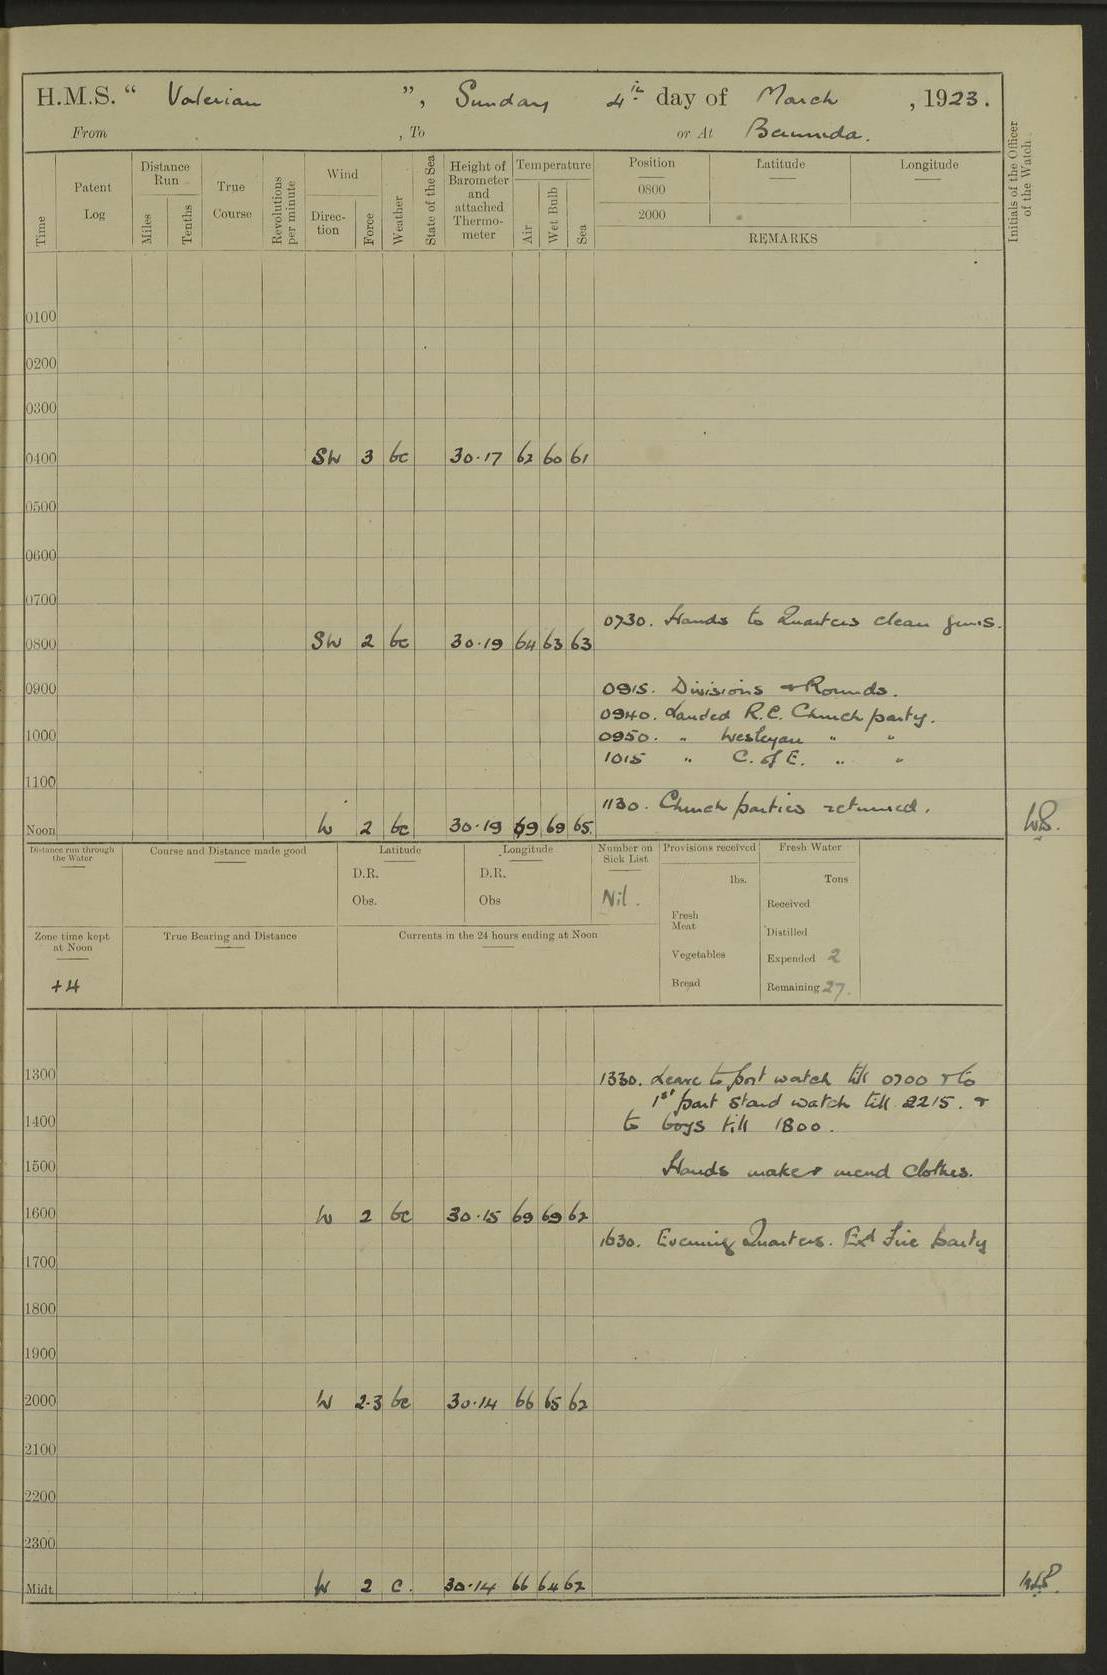 H.M.S. “ Valerian ”, Sunday 4th day of March , 1923.
From , To or At Bermuda.
Time
Patent Log
Distance Run
Miles
Tenths
True Course
Revolutions per minute
Wind
Direc-tion
Force
Weather
State of the Sea
Height of Barometer and attached Thermo-meter
Temperature
Air
Wet Bulb
Sea
Position Latitude Longitude
0800
2000
REMARKS
Initials of the Officer of the Watch
0100
0200
0300
0400 SW 3 bc 30·17 62 60 61
0500
0600
0700
0730. Hands to Quarters clean guns.
0800 SW 2 bc 30·19 64 63 63
0900
0915. Divisions + Rounds.
0940. Landed R.C. Church party.
1000
0950. " Wesleyan " "
1015 " C. of E. " "
1100
1130. Church parties returned.
Noon W 2 bc 30·19 69 69 65.
Distance run through the Water
Course and Distance made good
Latitude
D.R.
Obs.
Longitude
D.R.
Obs
Number on Sick List
Nil.
Provisions received
lbs.
Fresh Meat
Vegetables
Bread
Fresh Water
Tons
Received
Distilled
Expended 2
Remaining 27.
Zone time kept at Noon
+4
True Bearing and Distance
Currents in the 24 hours ending at Noon
1300
1330. Leave to port watch till 0700 + to
1st part Starbd watch till 2215. +
1400
to boys till 1800.
1500
Hands make + mend clothes.
1600 W 2 bc 30·15 69 69 62
1630. Evening Quarters. Exd Fire party
1700
1800
1900
2000 W 2·3 bc 30·14 66 65 62
2100
2200
2300
Midt. W 2 c. 30·14 66 64 62